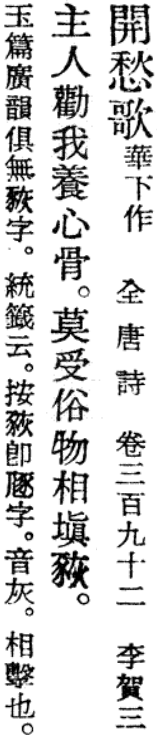 開愁歌華下作　全唐詩　卷三百九十二　李賀三
主人勸我養心骨。莫受俗物相塡豥。
玉篇廣韻俱無豥字。統籤云。按豥卽豗字。音灰。相擊也。